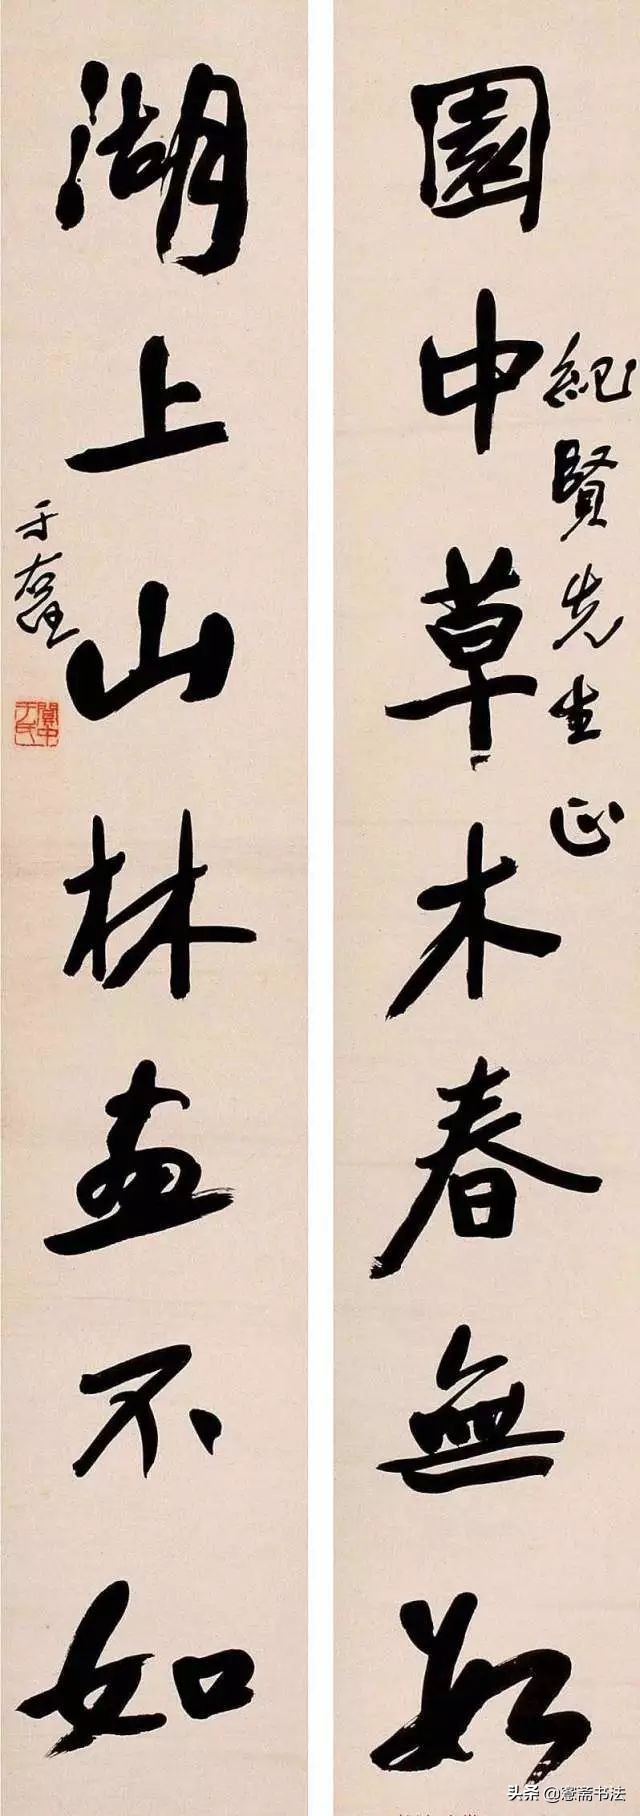 園中草木春無數
紀賢先生正
湖上山林畫不如
于右任
關中于氏
头条 @愙斋书法